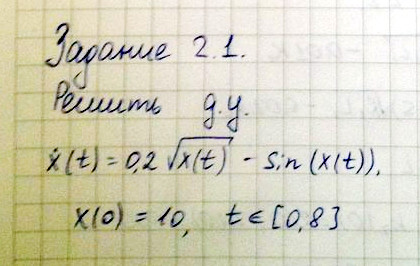 Задание 2.1.
Решить д.у.
ẋ(t) = 0,2 √x(t) - sin (x(t)),
x(0) = 10, t ∈ [0,8]